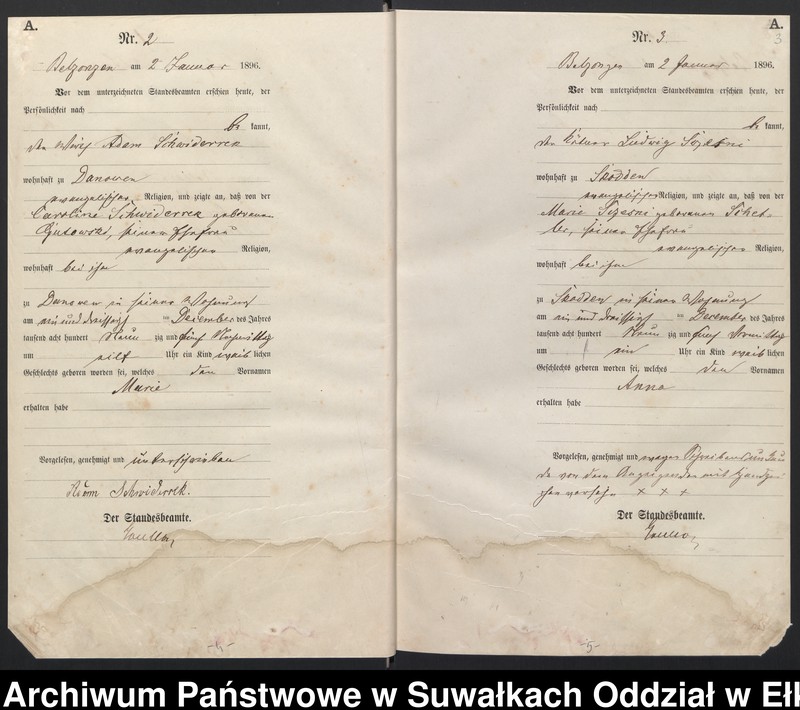 A.
Nr. 2
Belzonzen am 2 Januar 1896.
Vor dem unterzeichneten Standesbeamten erschien heute, der
Persönlichkeit nach
be kannt,
der Wirth Adam Schwiderrek
wohnhaft zu Danowen
evangelischer Religion, und zeigte an, daß von der
Caroline Schwiderrek geborenen
Gutowski, seiner Ehefrau
evangelischer Religion,
wohnhaft bei ihm
zu Danowen in seiner Wohnung
am ein und dreissigsten December des Jahres
tausend acht hundert Neun zig und fünf Nachmittag
um eilf Uhr ein Kind weib lichen
Geschlechts geboren worden sei, welches den Vornamen
Marie
erhalten habe
Vorgelesen, genehmigt und unterschrieben
Adam Schwiderrek.
Der Standesbeamte.
A.
3
Nr. 3
Belzonzen am 2 Januar 1896.
Vor dem unterzeichneten Standesbeamten erschien heute, der
Persönlichkeit nach
be kannt,
der Kätner Ludwig
wohnhaft zu Skodden
evangelischer Religion, und zeigte an, daß von der
Marie geborenen
seiner Ehefrau
evangelischer Religion,
wohnhaft bei ihm
zu Skodden in seiner Wohnung
am ein und dreissigsten December des Jahres
tausend acht hundert Neun zig und fünf Vormittag
um ein Uhr ein Kind weib lichen
Geschlechts geboren worden sei, welches den Vornamen
Anna
erhalten habe
Vorgelesen, genehmigt und wegen Schreibensunkun
de von dem Anzeigenden mit Handzei
chen versehn + + +
Der Standesbeamte.
-4-
-5-
Archiwum Państwowe w Suwałkach Oddział w Ełk